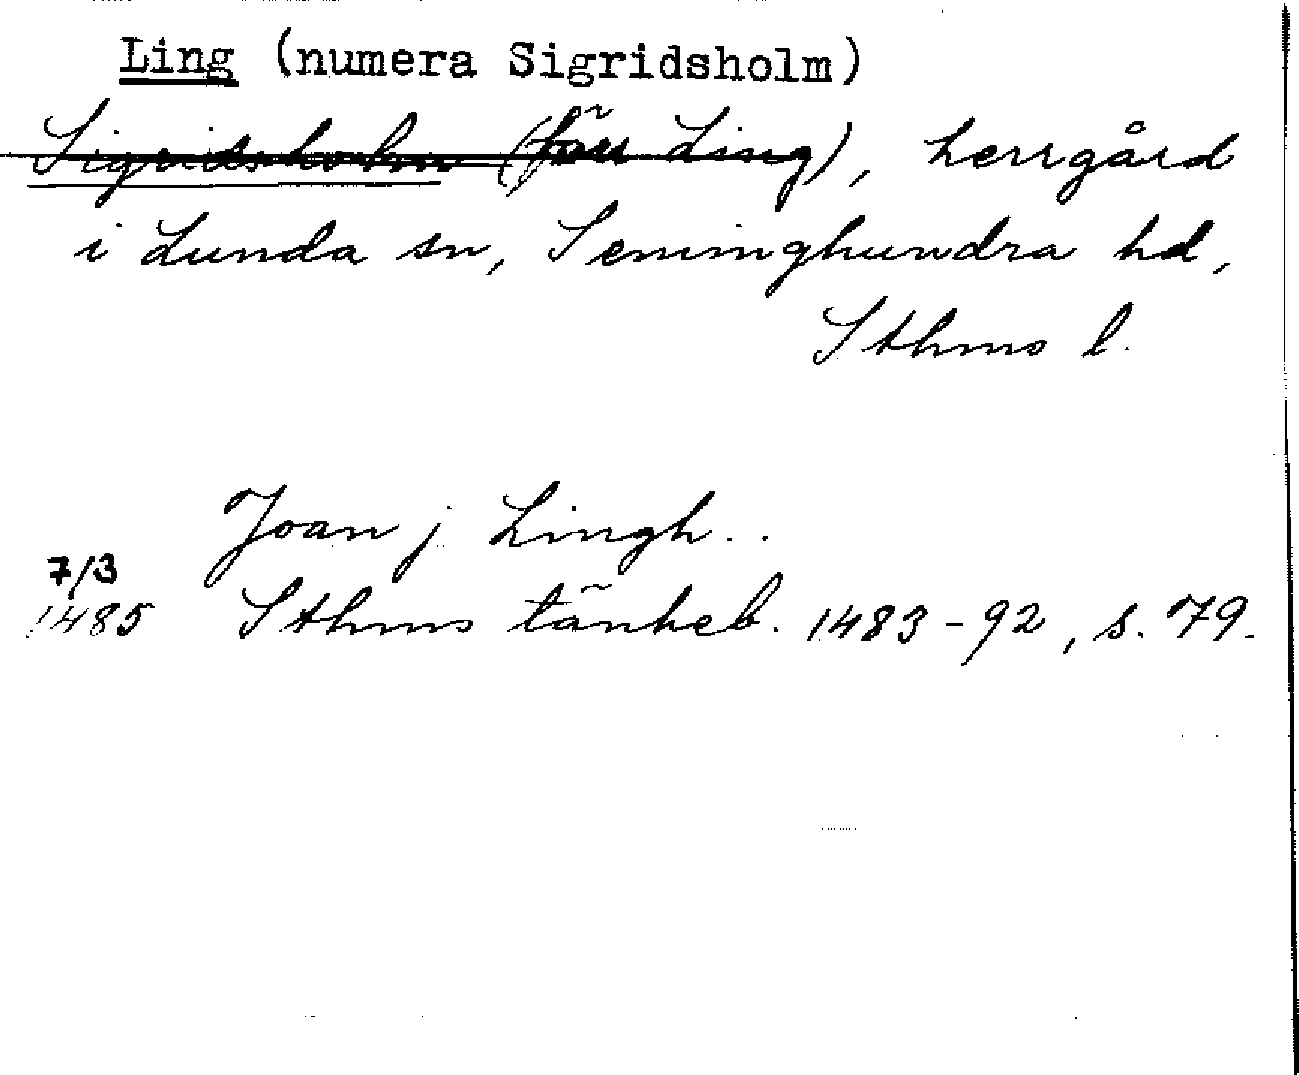 Ling (numera Sigridsholm)
Sigridsholm (förr Ling), herrgård
i Lunda sn, Seminghundra hd,
Sthms l.
Joan j Lingh..
7/3
1485 Sthms tänkeb. 1483-92, s. 79.